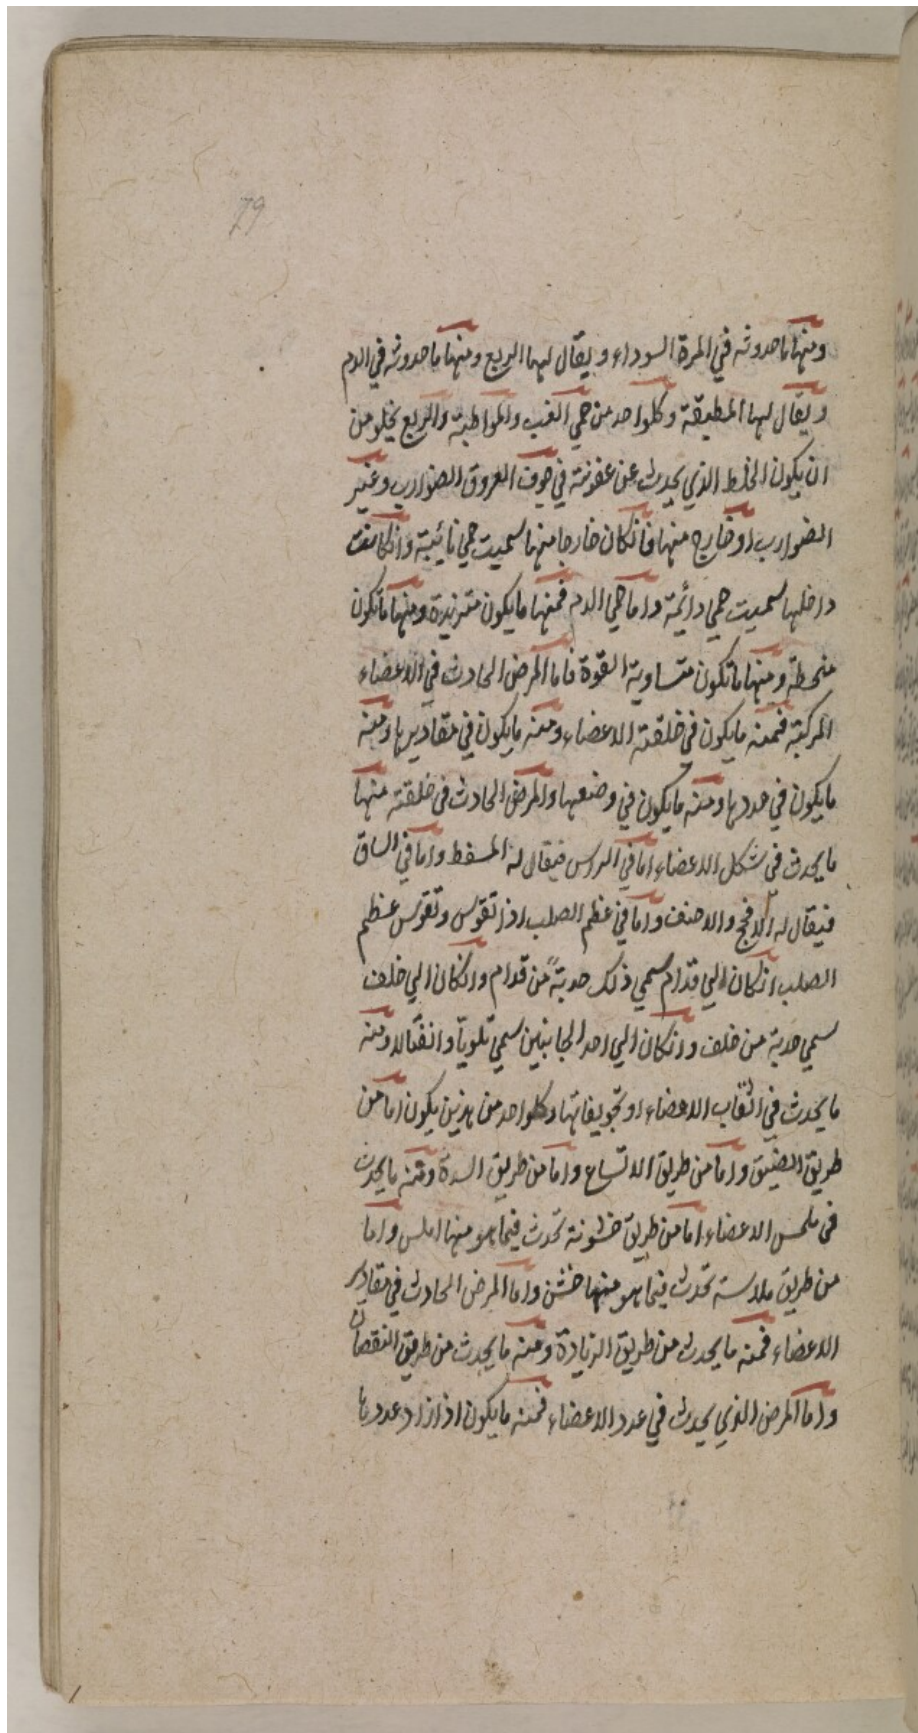 79
ومنها ما حدوثه في المرة السوداء ويقال لها الربع ومنها ما حدوثه في الدم
ويقال لها المطبقة وكلواحد من حمي الغب والمواظبة والربع يخلو من
ان يكون الخلط الذي يحدث عن عفونته في جوف العروق الضوارب وغير
الضوارب او خارج منها فانكان خارجا منها سميت حمي نائبة وانكانت
داخلها سميت حمي دائمة واما حمي الدم فمنها ما يكون متزيدة ومنها ما تكون
منحطة ومنها ما تكون متساوية القوة فاما المرض الحادث في الاعضاء
المركبة فمنه ما يكون في خلقته الاعضاء ومنه ما يكون في مقاديرها ومنه
ما يكون في عددها ومنه ما يكون في وضعها والمرض الحادث في خلقته منها
ما يحدث في شكل الاعضاء اما في الراس فيقال له المسفط واما في الساق
فيقال له الافحج والاحنف واما في عظم الصلب اذا تقوس وتقوس عظم
الصلب انكان الي قدام سمي ذلك حدبة من قدام وانكان الي خلف
سمي حدبة من خلف وانكان الي احد الجانبين سمي تلوياً وانفتالا ومنه
ما يحدث في اثقاب الاعضاء او تجويفاتها وكلواحد من هذين يكون اما من
طريق الضيق واما من طريق الاتساع واما من طريق السدة ومنه ما يحدث
في ملمس الاعضاء اما من طريق خشونة تحدث فيما هو منها املس واما
من طريق ملاسة تحدث فيما هو منها خشن واما المرض الحادث في مقادير
الاعضاء فمنه ما يحدث من طريق الزيادة ومنه ما يحدث من طريق النقصان
واما المرض الذي يحدث في عدد الاعضاء فمنه ما يكون اذا زاد عددها